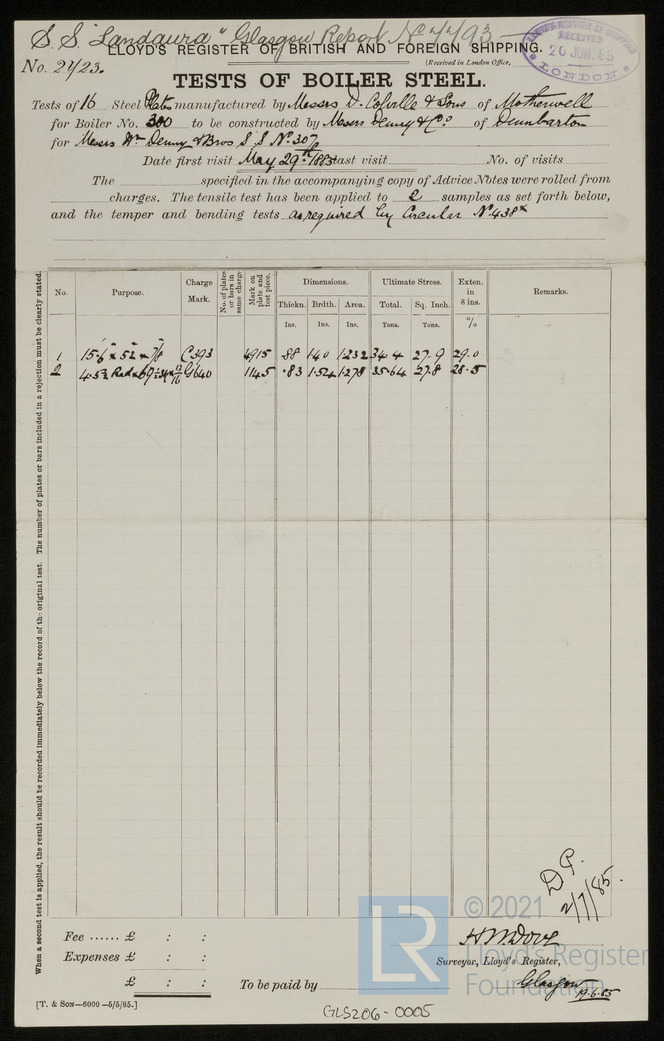 S.S. "Landaura" Glasgow Report No 7793
LLOYD'S REGISTER OF BRITISH AND FOREIGN SHIPPING.
(Received in London Office,
LLOYD'S REGISTER OF SHIPPING
RECEIVED
20 JUN. 85
LONDON
No. 2423.
TESTS OF BOILER STEEL.
Tests of 16 Steel Plates manufactured by Messrs D. Colville & Sons of Motherwell
for Boiler No. 300 to be constructed by Messrs Denny & Co of Dumbarton
for Messrs Wm Denny & Bros S S No. 307
Date first visit May 29th 1885 Last visit No. of visits
The specified in the accompanying copy of Advice Notes were rolled from
charges. The tensile test has been applied to 2 samples as set forth below,
and the temper and bending tests as required by Circular No 438
When a second test is applied, the result should be recorded immediately below the record of the original test. The number of plates or bars included in a rejection must be clearly stated.
No. Purpose. Charge Mark. No. of plates or bars in same charge Mark on plate and test piece. Dimensions. Ultimate Stress. Exten. in 8 ins. Remarks.
Thickn. Brdth. Area. Total. Sq. Inch.
Ins. Ins. Ins. Tons. Tons. %
1 15.6 x 52 x 7/8 C393 4915 .88 1.40 1.232 34.4 27.9 29.0
2 4.5 1145 .83 1.54 1.278 35.64 27.8 28.5
D.P.
2/7/85.
© 2021
LR
Lloyd's Register
Foundation
Fee ...... £ : :
Expenses £ : :
£ : :
H M Dove
Surveyor, Lloyd's Register,
To be paid by Glasgow
19.6.85
[T. & Son—6000—5/5/85.]
GLS206-0005